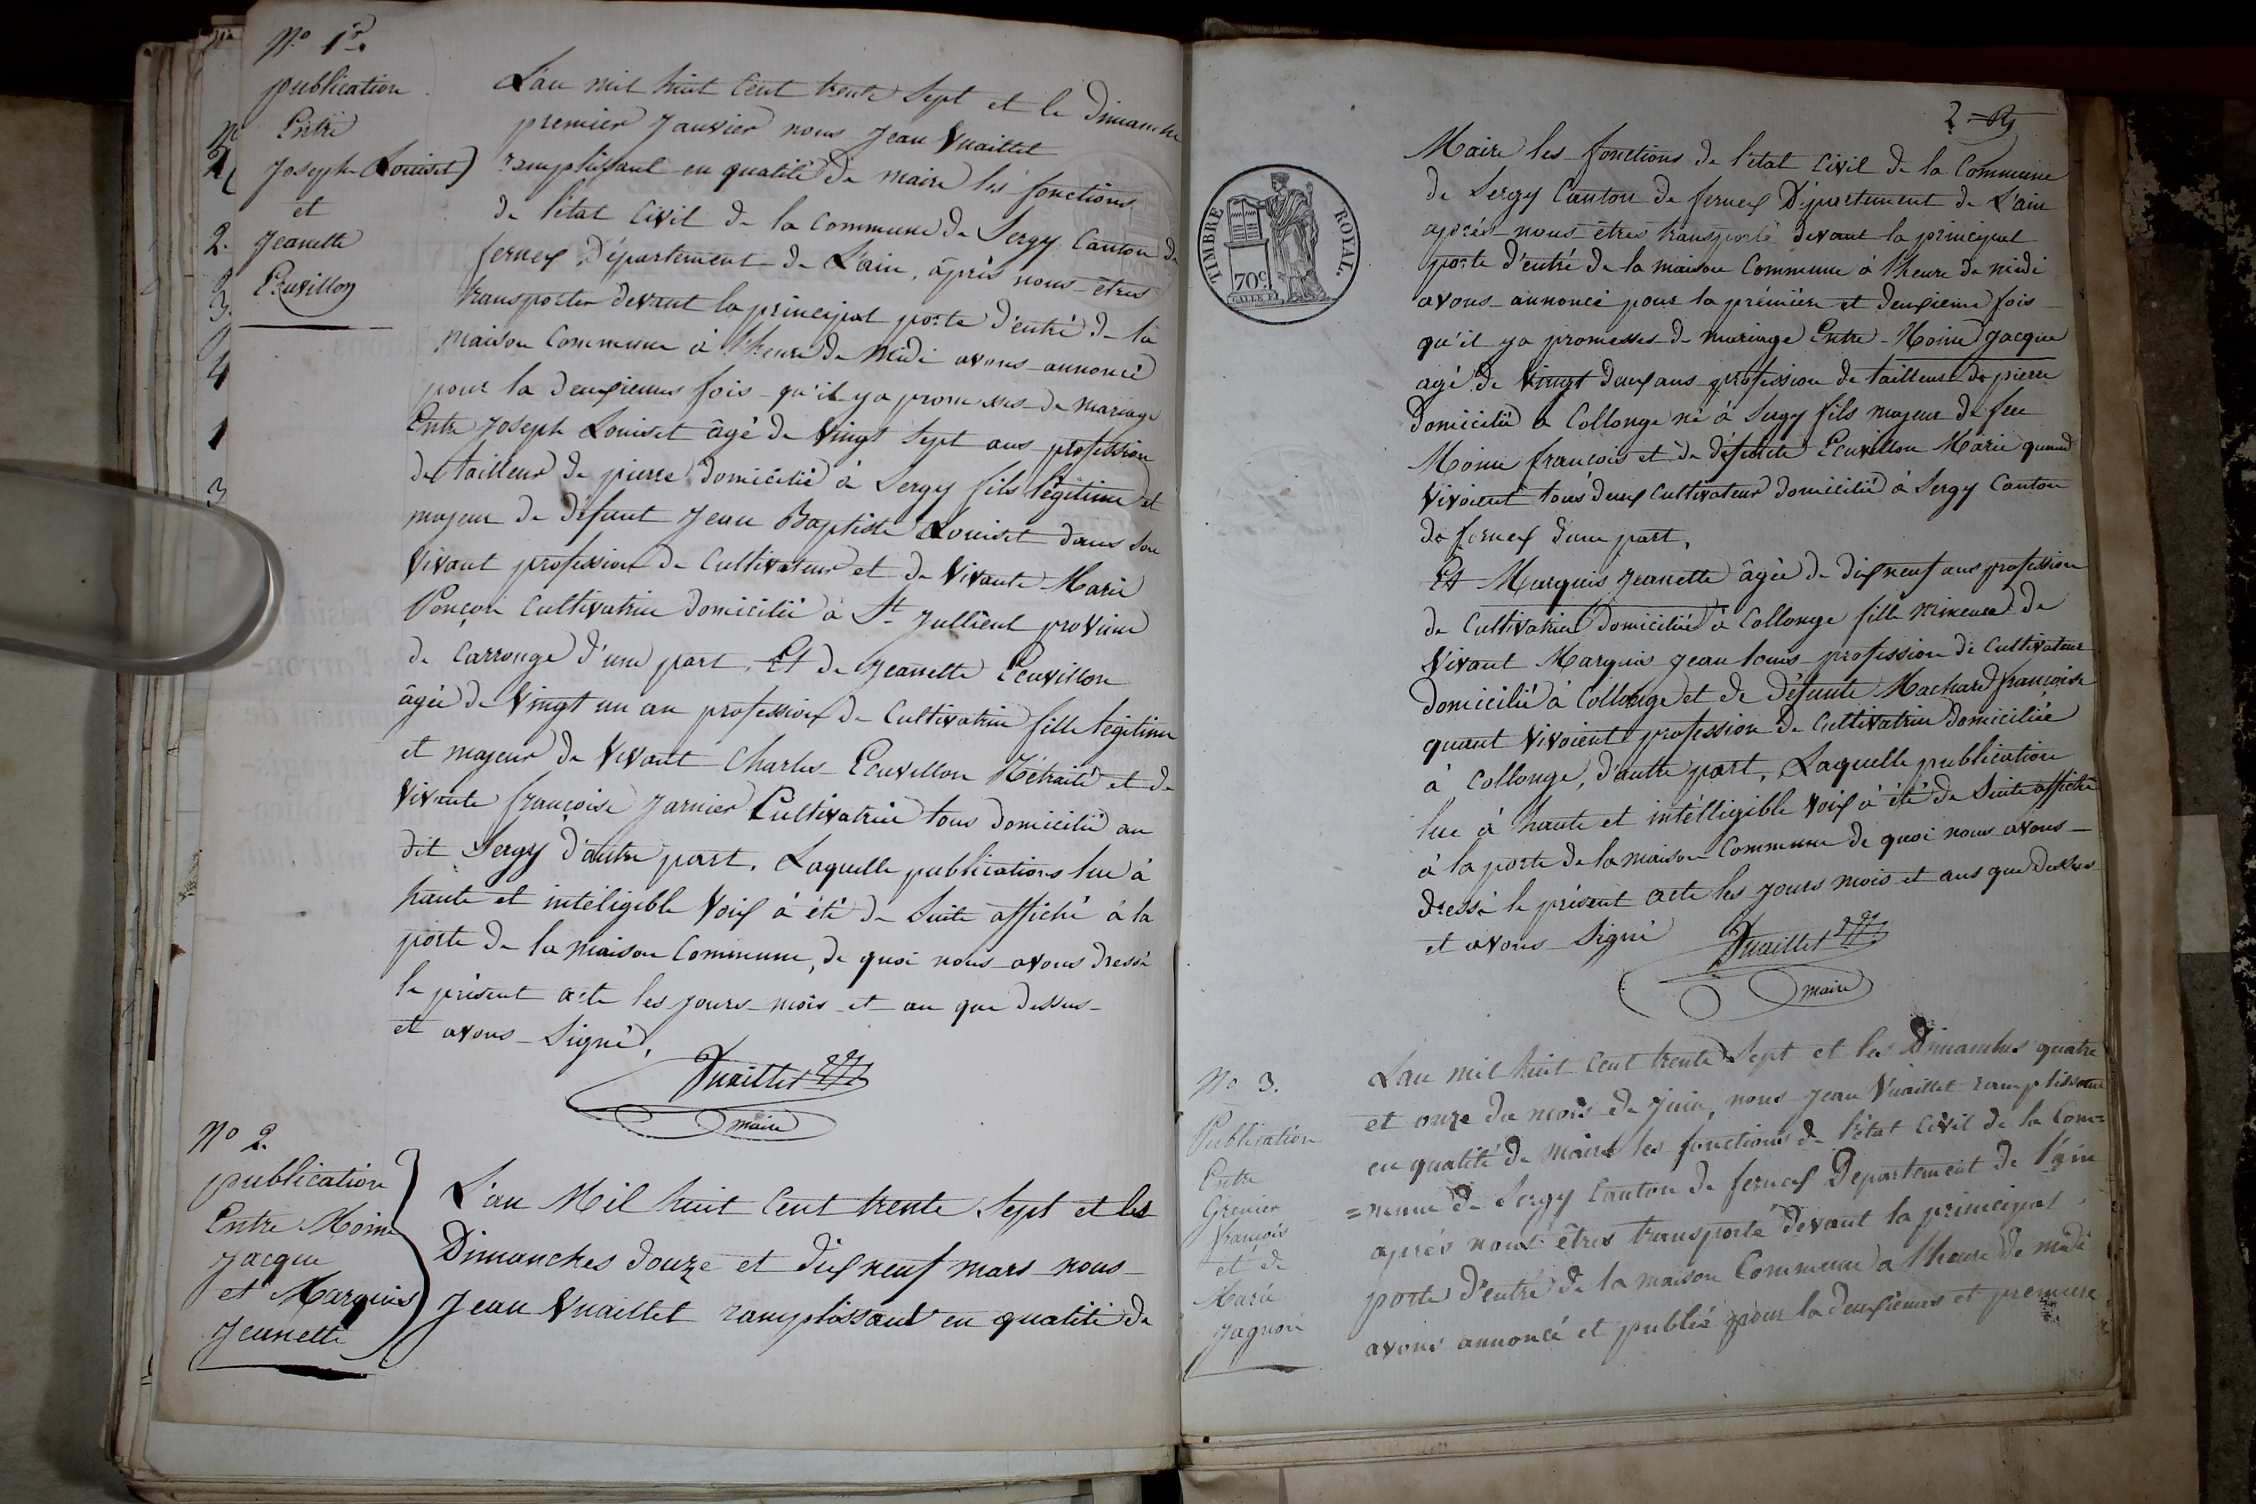 N.o 1er.
publication
Entre
Joseph Louiset
et
Jeanette
Ecuvillon
L'an mil huit Cent trente Sept et le Dimanche
premier Janvier nous Jean Vuaillet
ramplissant en qualité de maire les fonctions
de l'état Civil de la Commune de Sergy Canton de
fernex Département de L'ain, âprès nous êtres
transporter devant la principal porte d'entré de la
maison Commune à l'heure de Midi avons annoncé
pour la deuxiemes fois qu'il ya promesses de mariage
Entre Joseph Louiset âgé de Vingt Sept ans profession
de tailleur de pierre domicilié à Sergy fils légitime et
majeur de défunt Jean Baptiste Louiset dans son
Vivant profession de Cultivateur et de Vivante Marie
Ponçon Cultivatrice domicilié à St Jullient province
de Carronge d'une part. Et de Jeanette Ecuvillon
âgée de Vingt un an profession de Cultivatrice fille légitime
et majeur de Vivant Charles Ecuvillon Rétraité et de
Vivante françoise Jarnier Cultivatrice tous domicilié au
dit Sergy d'autre part. Laquelle publications lue à
haute et intéligible Voix à été de Suite affiché à la
porte de la maison Commune, de quoi nous avons dressé
le présent acte les jours mois et an que dessus
et avons Signé,
Vuaillet
maire
No 2.
publication
Entre Moine
Jacque
et Marquis
Jeanette
L'an Mil huit Cent trente Sept et les
Dimanches douze et dix neuf mars nous
Jean Vuaillet ramplissant en qualité de
2
TIMBRE ROYAL.
70c
Maire les fonctions de l'état Civil de la Commune
de Sergy Canton de fernex Département de L'ain
après nous êtres transporté devant la principal
porte d'entré de la maison Commune à l'heure de midi
avons annoncé pour la prémière et deuxieme fois
qu'il ya promesses de mariage Entre Moine Jacque
agé de Vingt deux ans profession de tailleur de pierre
domicilié a Collonge né à Sergy fils majeur de feu
Moine françois et de défunte Ecuvillon Marie quand
Vivoient tous deux Cultivateur domicilié à Sergy Canton
de fernex d'une part,
Et Marquis Jeanette âgée de dix neuf ans profession
de Cultivatrice domiciliée à Collonge fille mineure de
Vivant Marquis Jean louis profession de Cultivateur
domicilié à Collonge et de Défunte Machard françoise
quant Vivoient profession de Cultivatrice domiciliée
à Collonge, d'autre part, Laquelle publication
lue à haute et intélligible Voix à été de Suite affiché
à la porte de la maison Commune de quoi nous avons
dressé le présent acte les jours mois et ans que dessus
et avons Signé
Vuaillet
maire
No 3.
Publication
Entre
Grenier
françois
et de
Marie
Jagnon
L'an mil huit Cent trente Sept et les Dimanches quatre
et onze du mois de Juin, nous Jean Vuaillet ramplissant
en qualité de Maire les fonctions de l'état Civil de la Com=
=mune de Sergy Canton de fernex Département de l'ain
après nous êtres transporté devant la principal
porte d'entré de la maison Commune a l'heure de midi
avons annoncé et publié pour la deuxiemes et premiere